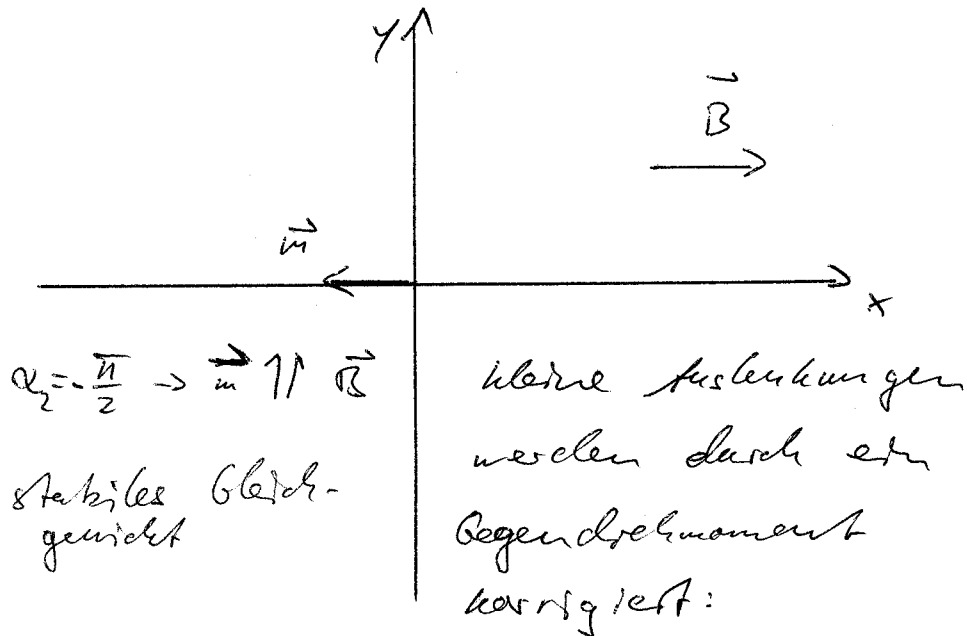 y
B⃗
m⃗
x
α₂ = -π/2 → m⃗ ↑↑ B⃗
stabiles Gleich-
gewicht
kleine Auslenkungen
werden durch ein
Gegendrehmoment
korrigiert: